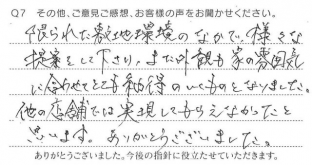 Q7 その他、ご意見ご感想、お客様の声をお聞かせください。
限られた敷地環境のなかで、様々な
提案をして下さり、また外観も家の雰囲気
に合わせてとても納得のいくものとなりました。
他の店舗では実現してもらえなかったと
思います。ありがとうございました。
ありがとうございました。今後の指針に役立たせていただきます。